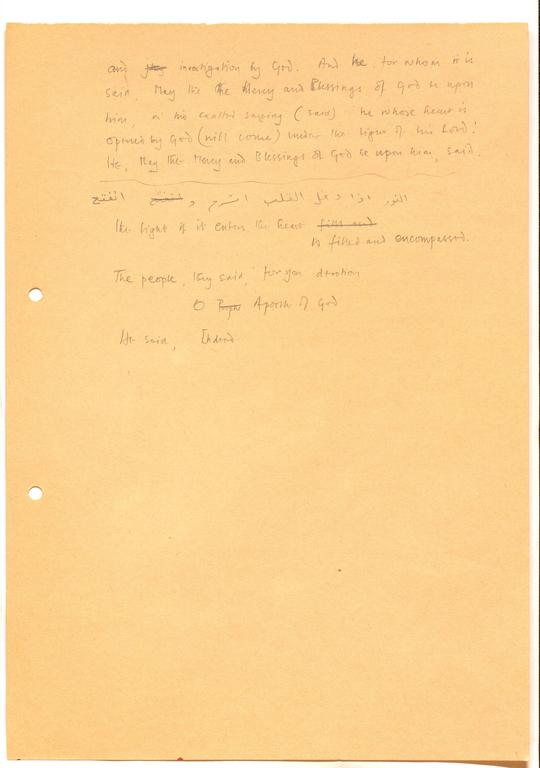 and investigation by God. And he, for whom it is
said, May the Mercy and Blessings of God be upon
him, in his exalted saying (said) he whose heart is
opened by God (will come) under the light of his Lord!
He, May the Mercy and Blessings of God be upon him, said.
النور اذا دخل القلب انشرح و انفتح
the light if it enters the heart filled and
is filled and encompassed.
The people, they said, for you devotion
O Apostle of God
He said, Indeed